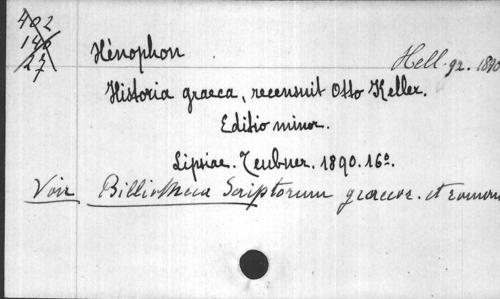 402
146
27
7
Hénophon
Hell. gr. 1890
Historia graeca, recensuit Otto Keller.
Editio minor.
Lipsiae. Teubner. 1890. 16º.
Voir Bibliotheca Scriptorum graecor. et roman